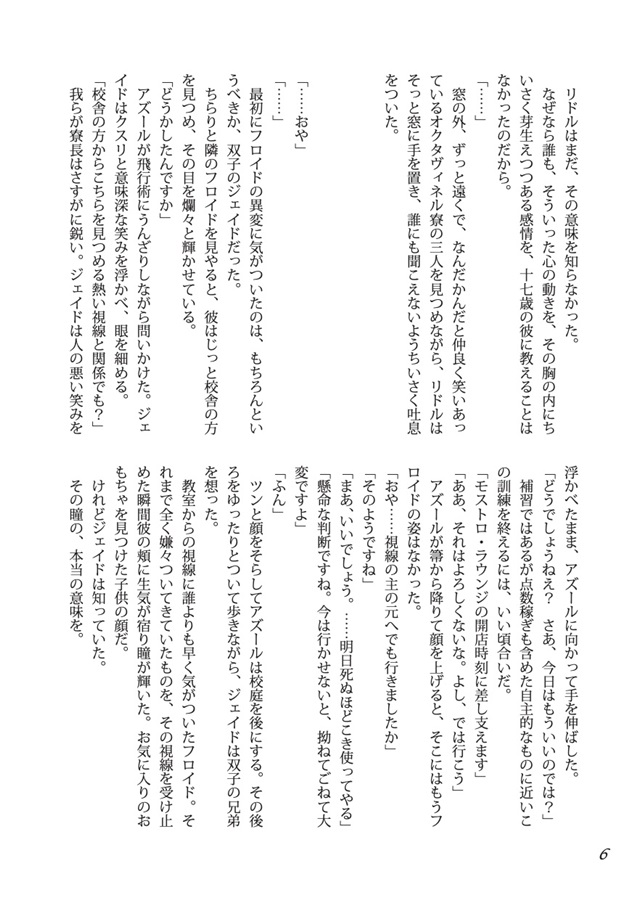 リドルはまだ、その意味を知らなかった。
なぜなら誰も、そういった心の動きを、その胸の内にち
いさく芽生えつつある感情を、十七歳の彼に教えることは
なかったのだから。
「……」
窓の外、ずっと遠くで、なんだかんだと仲良く笑いあっ
ているオクタヴィネル寮の三人を見つめながら、リドルは
そっと窓に手を置き、誰にも聞こえないようちいさく吐息
をついた。
「……おや」
「……」
最初にフロイドの異変に気がついたのは、もちろんとい
うべきか、双子のジェイドだった。
ちらりと隣のフロイドを見やると、彼はじっと校舎の方
を見つめ、その目を爛々と輝かせている。
「どうかしたんですか」
アズールが飛行術にうんざりしながら問いかけた。ジェ
イドはクスリと意味深な笑みを浮かべ、眼を細める。
「校舎の方からこちらを見つめる熱い視線と関係でも？」
我らが寮長はさすがに鋭い。ジェイドは人の悪い笑みを
浮かべたまま、アズールに向かって手を伸ばした。
「どうでしょうねえ？　さあ、今日はもういいのでは？」
補習ではあるが点数稼ぎも含めた自主的なものに近いこ
の訓練を終えるには、いい頃合いだ。
「モストロ・ラウンジの開店時刻に差し支えます」
「ああ、それはよろしくないな。よし、では行こう」
アズールが箒から降りて顔を上げると、そこにはもうフ
ロイドの姿はなかった。
「おや……視線の主の元へでも行きましたか」
「そのようですね」
「まあ、いいでしょう。……明日死ぬほどこき使ってやる」
「懸命な判断ですね。今は行かせないと、拗ねてごねて大
変ですよ」
「ふん」
ツンと顔をそらしてアズールは校庭を後にする。その後
ろをゆったりとついて歩きながら、ジェイドは双子の兄弟
を想った。
教室からの視線に誰よりも早く気がついたフロイド。そ
れまで全く嫌々ついてきていたものを、その視線を受け止
めた瞬間彼の頬に生気が宿り瞳が輝いた。お気に入りのお
もちゃを見つけた子供の顔だ。
けれどジェイドは知っていた。
その瞳の、本当の意味を。
6